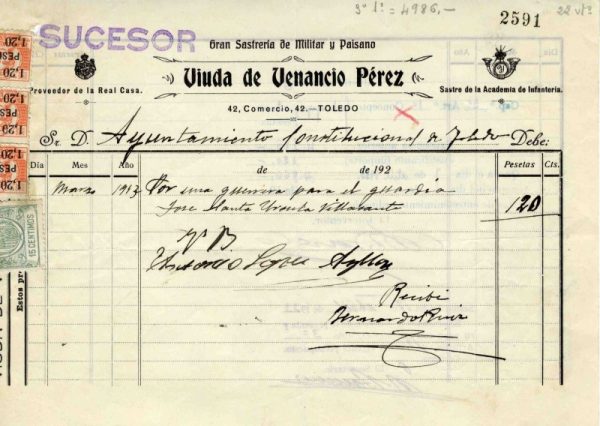 9º 1º = 4986,-
2591
22 vtº
SUCESOR
Gran Sastrería de Militar y Paisano
Viuda de Venancio Pérez
Proveedor de la Real Casa.
Sastre de la Academia de Infantería.
42, Comercio, 42.-TOLEDO
Sr. D. Ayuntamiento Constitucional de Toledo Debe:
Día Mes Año de de 192 Pesetas Cts.
Marzo Por una guerrera para el guardia 120
Jose Santa Ursula Villarante
Vº Bº
Antonio Lopez Ayllon
Recibi
Bernardo Ruiz
1,20
PESE
1,20
1,20
1,20
15 CENTIMOS
Estos pre